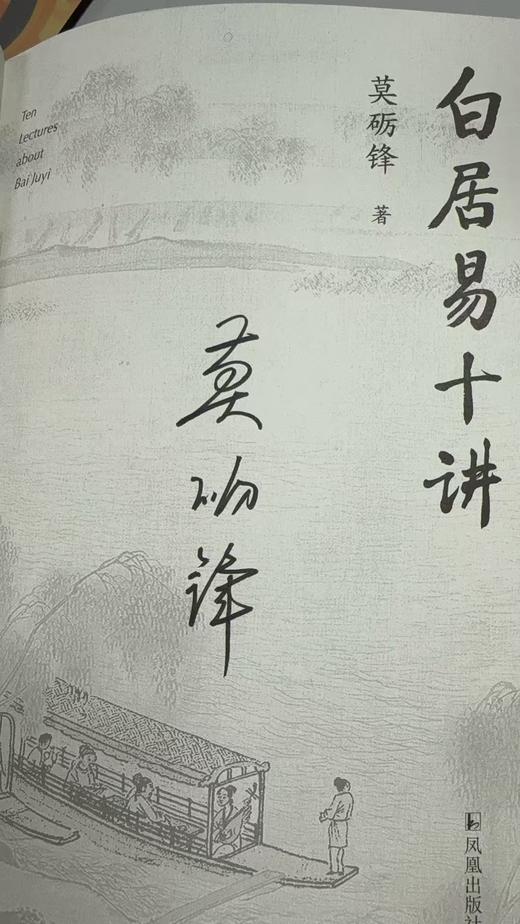 白居易十讲
莫砺锋 著
Ten
Lectures
about
Bai Juyi
莫砺锋
凤凰出版社